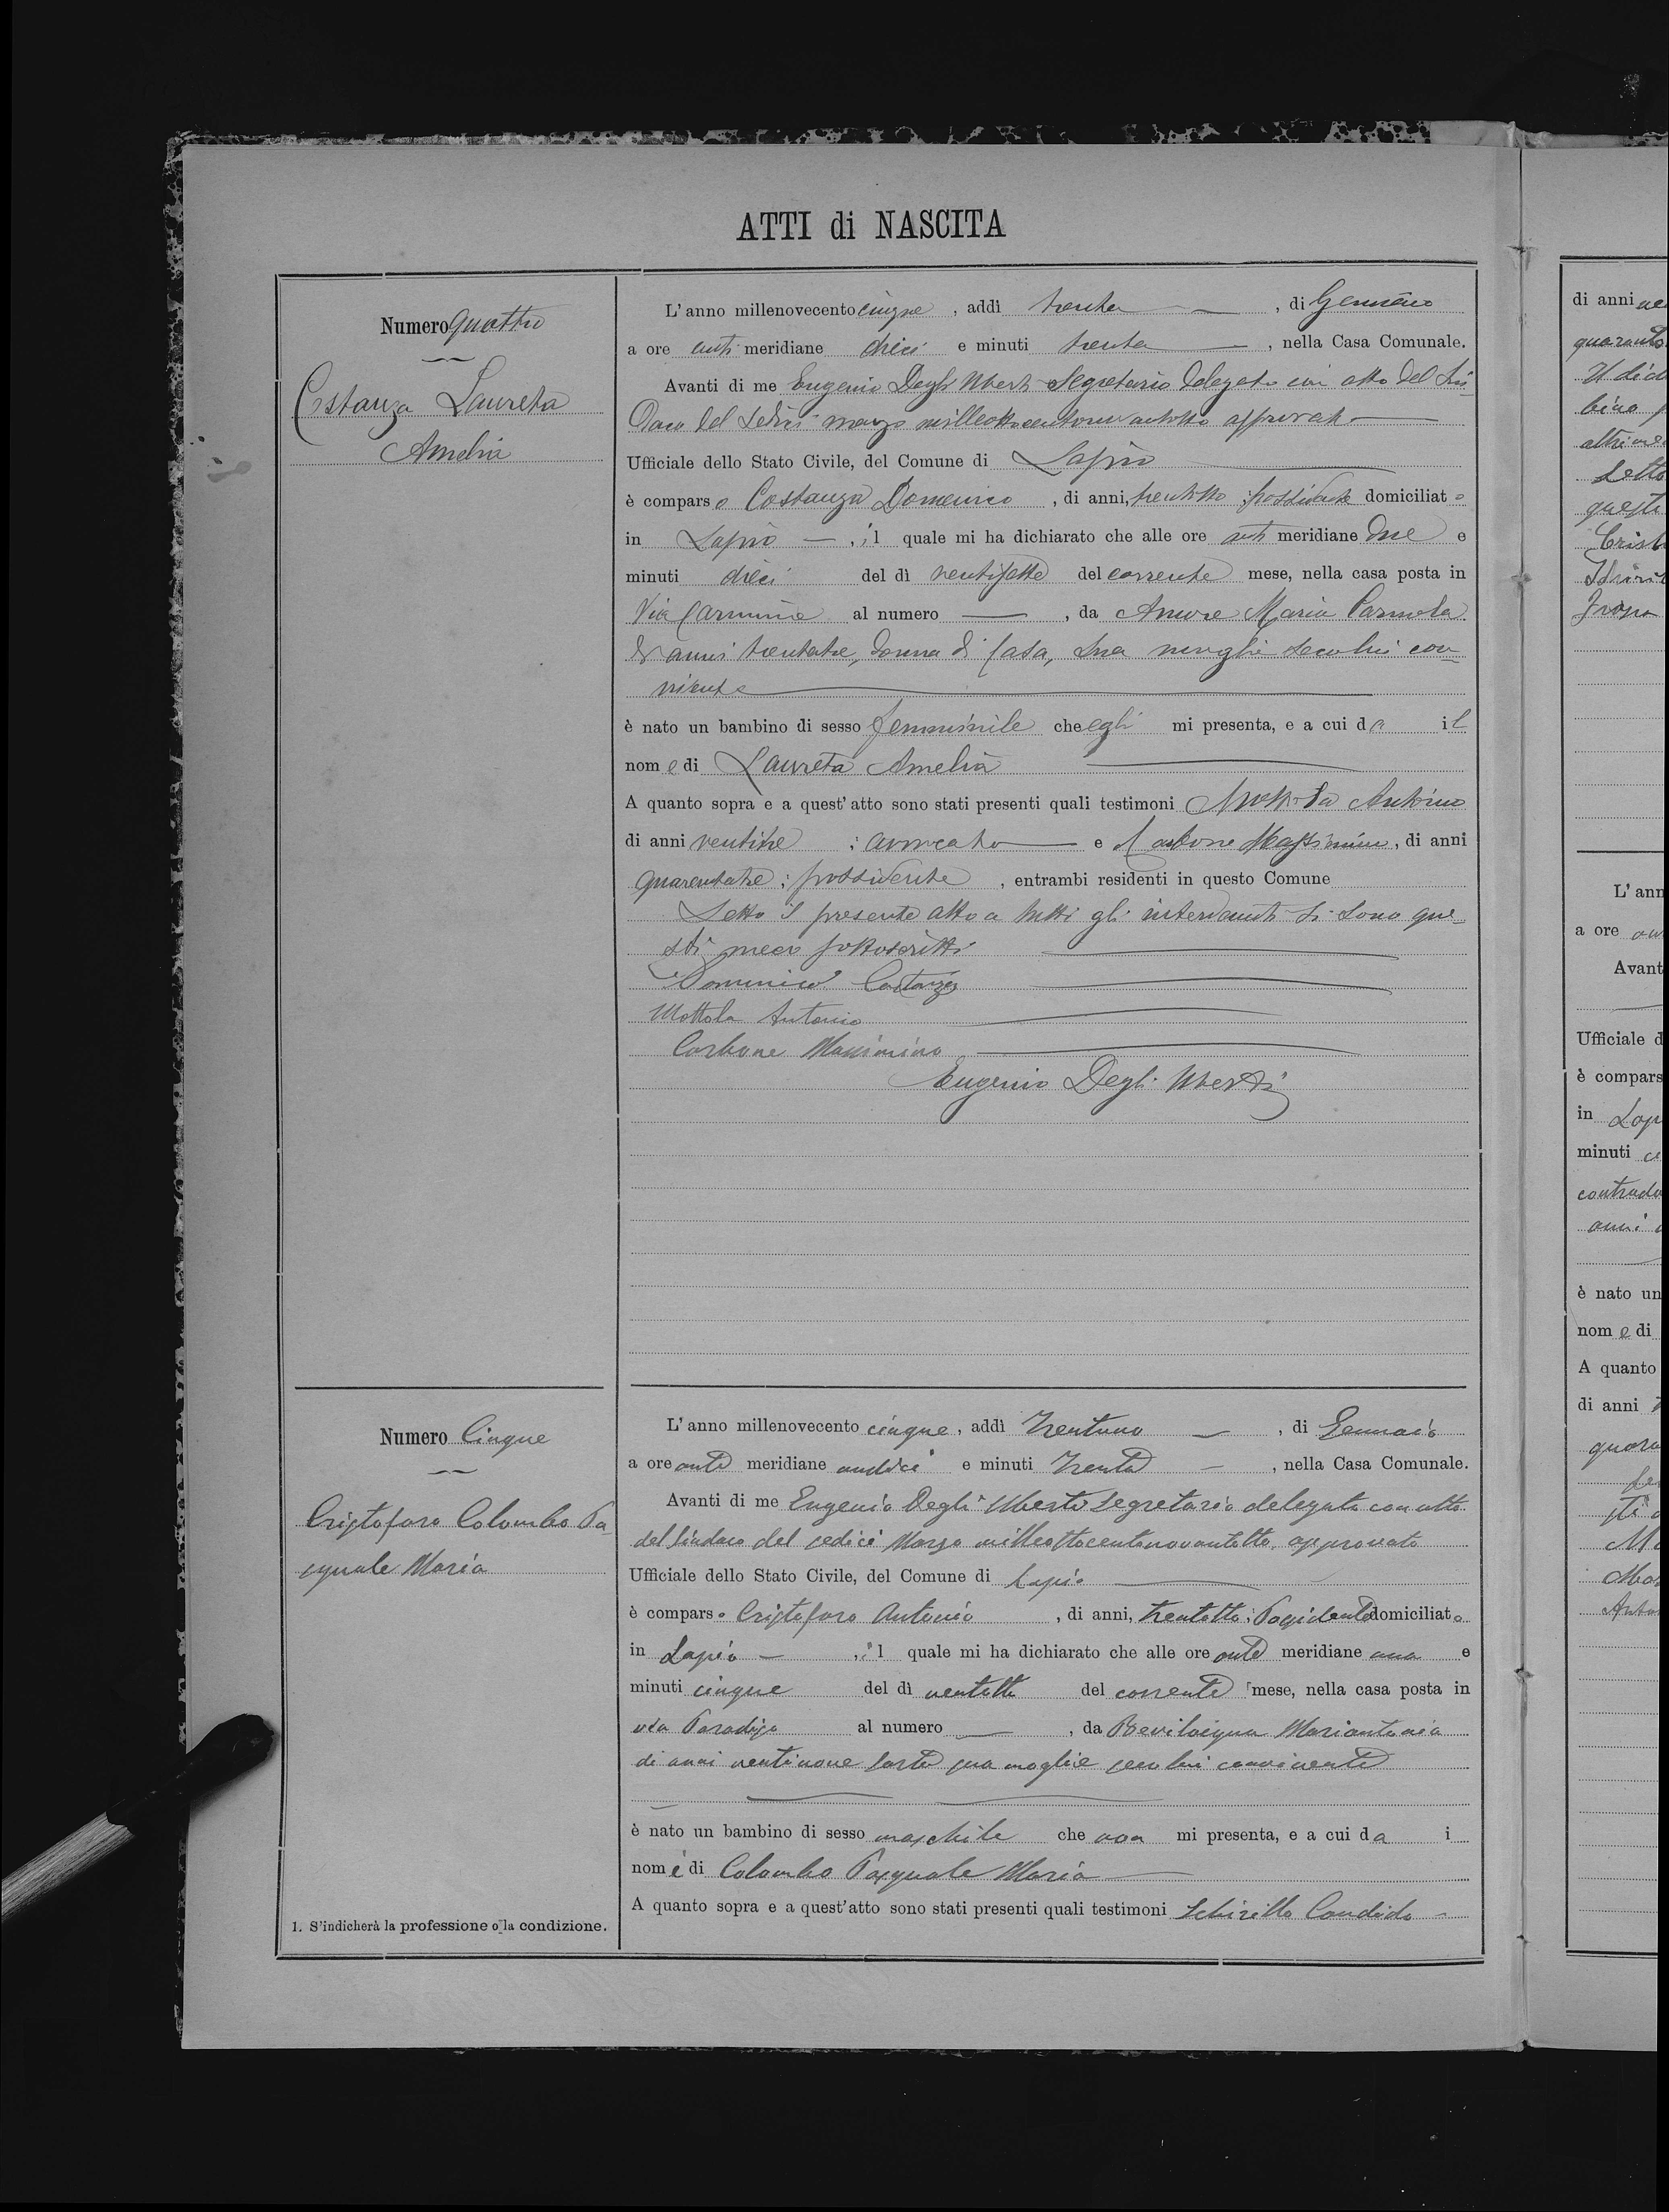 ATTI di NASCITA
Numero Quattro
Costanza Laureta
Amelia
L'anno millenovecento cinque, addì trenta, di Gennaio
a ore anti meridiane dieci e minuti trenta, nella Casa Comunale.
Avanti di me Eugenio Degli Uberti Segretario delegato con atto del Sin
daco del sedici marzo milleottocentonovantotto approvato
Ufficiale dello Stato Civile, del Comune di Lapio
è comparso Costanza Domenico, di anni, trentotto; possidente domiciliato
in Lapio, il quale mi ha dichiarato che alle ore anti meridiane due e
minuti dieci del dì ventisette del corrente mese, nella casa posta in
Via Carmine al numero, da Amore Maria Carmela
di anni trentatre, donna di casa, sua moglie seco lui con
vivente
è nato un bambino di sesso femminile che egli mi presenta, e a cui da il
nome di Laureta Amelia
A quanto sopra e a quest'atto sono stati presenti quali testimoni Mottola Antonio
di anni ventitre; avvocato e Carbone Massimino, di anni
quarantatre; possidente, entrambi residenti in questo Comune
Letto il presente atto a tutti gli intervenuti si sono que
sti meco sottoscritti
Domenico Costanza
Mottola Antonio
Carbone Massimino
Eugenio Degli Uberti
Numero Cinque
Cristofaro Colombo Pa
squale Maria
1. S'indicherà la professione o la condizione.
L'anno millenovecento cinque, addì Trentuno, di Gennaio
a ore anti meridiane undici e minuti Trenta, nella Casa Comunale.
Avanti di me Eugenio Degli Uberti Segretario delegato con atto
del Sindaco del sedici Marzo milleottocentonovantotto, approvato
Ufficiale dello Stato Civile, del Comune di Lapio
è comparso Cristofaro Antonio, di anni, trentotto; Possidente domiciliato
in Lapio, il quale mi ha dichiarato che alle ore anti meridiane una e
minuti cinque del dì ventotto del corrente mese, nella casa posta in
via Paradiso al numero, da Bevilacqua Mariantonia
di anni ventinove sarta sua moglie seco lui convivente
è nato un bambino di sesso maschile che non mi presenta, e a cui da i
nomi di Colombo Pasquale Maria
A quanto sopra e a quest'atto sono stati presenti quali testimoni Schirillo Candido
di anni
L'ann
a ore
Avant
Ufficiale d
è compars
in Lap
minuti
contrada
anni
è nato un
nome di
A quanto
di anni